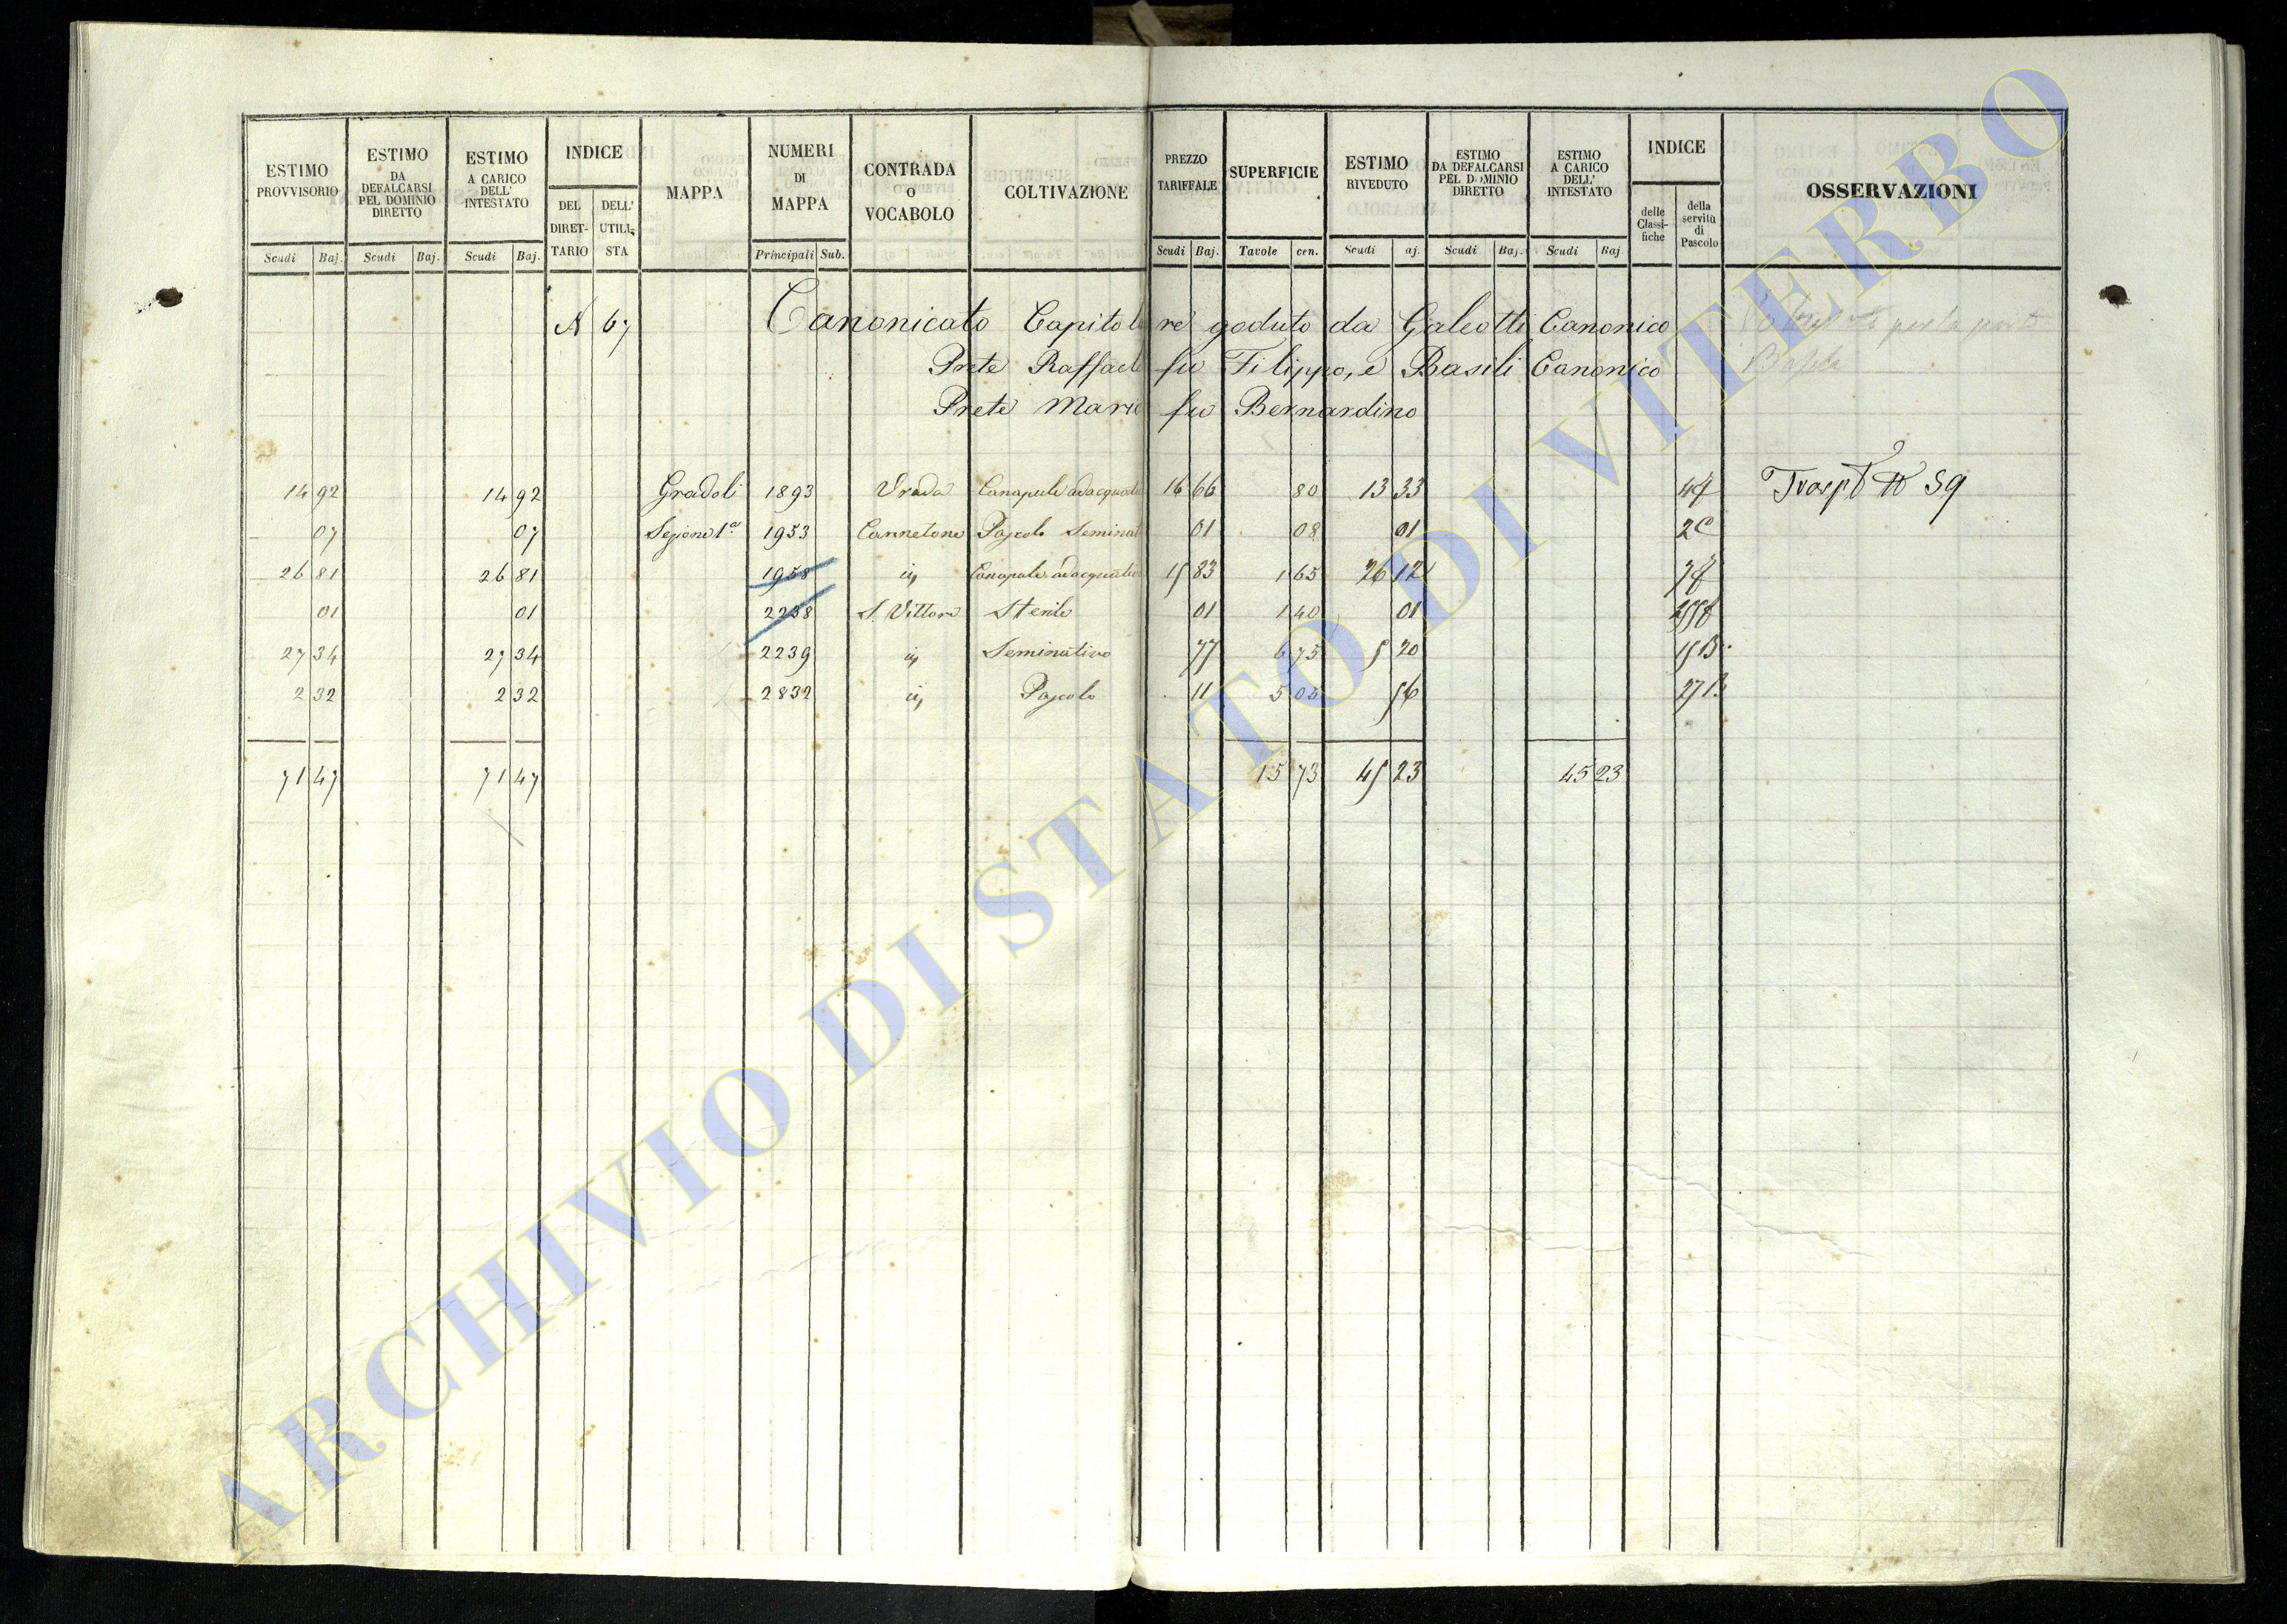 ESTIMO PROVVISORIO | ESTIMO DA DEFALCARSI PEL DOMINIO DIRETTO | ESTIMO A CARICO DELL' INTESTATO | INDICE | MAPPA | NUMERI DI MAPPA | CONTRADA O VOCABOLO | COLTIVAZIONE | PREZZO TARIFFALE | SUPERFICIE | ESTIMO RIVEDUTO | ESTIMO DA DEFALCARSI PEL DOMINIO DIRETTO | ESTIMO A CARICO DELL' INTESTATO | INDICE | OSSERVAZIONI
DEL DIRETTARIO | DELL' UTILISTA | delle Classifiche | della servitù di Pascolo
Scudi | Baj. | Scudi | Baj. | Scudi | Baj. | Principali | Sub. | Scudi | Baj. | Tavole | cen. | Scudi | aj. | Scudi | Baj. | Scudi | Baj.
N 67 Canonicato Capitolare goduto da Galeotti Canonico per la parte
Prete Raffaele fu Filippo, e Basili Canonico
Prete Mario fu Bernardino
14 92 | 14 92 | Gradoli | 1893 | Canapule adacquato | 16 66 | 80 | 13 33 | 59
07 | 07 | Sezione 1a | 1953 | Cannetone | Pascolo Seminat | 01 | 08 | 01 | 2C
26 81 | 26 81 | 1958 | Canapule adacquato | 15 83 | 1 65 | 26 12
01 | 01 | 2238 | S. Vittore | Sterile | 01 | 1 40 | 01
27 34 | 27 34 | 2239 | Seminativo | 77 | 6 75 | 5 20 | 15B
2 32 | 2 32 | 2832 | Pascolo | 11 | 5 05 | 56 | 27B
71 47 | 71 47 | 15 73 | 45 23 | 45 23
ARCHIVIO DI STATO DI VITERBO